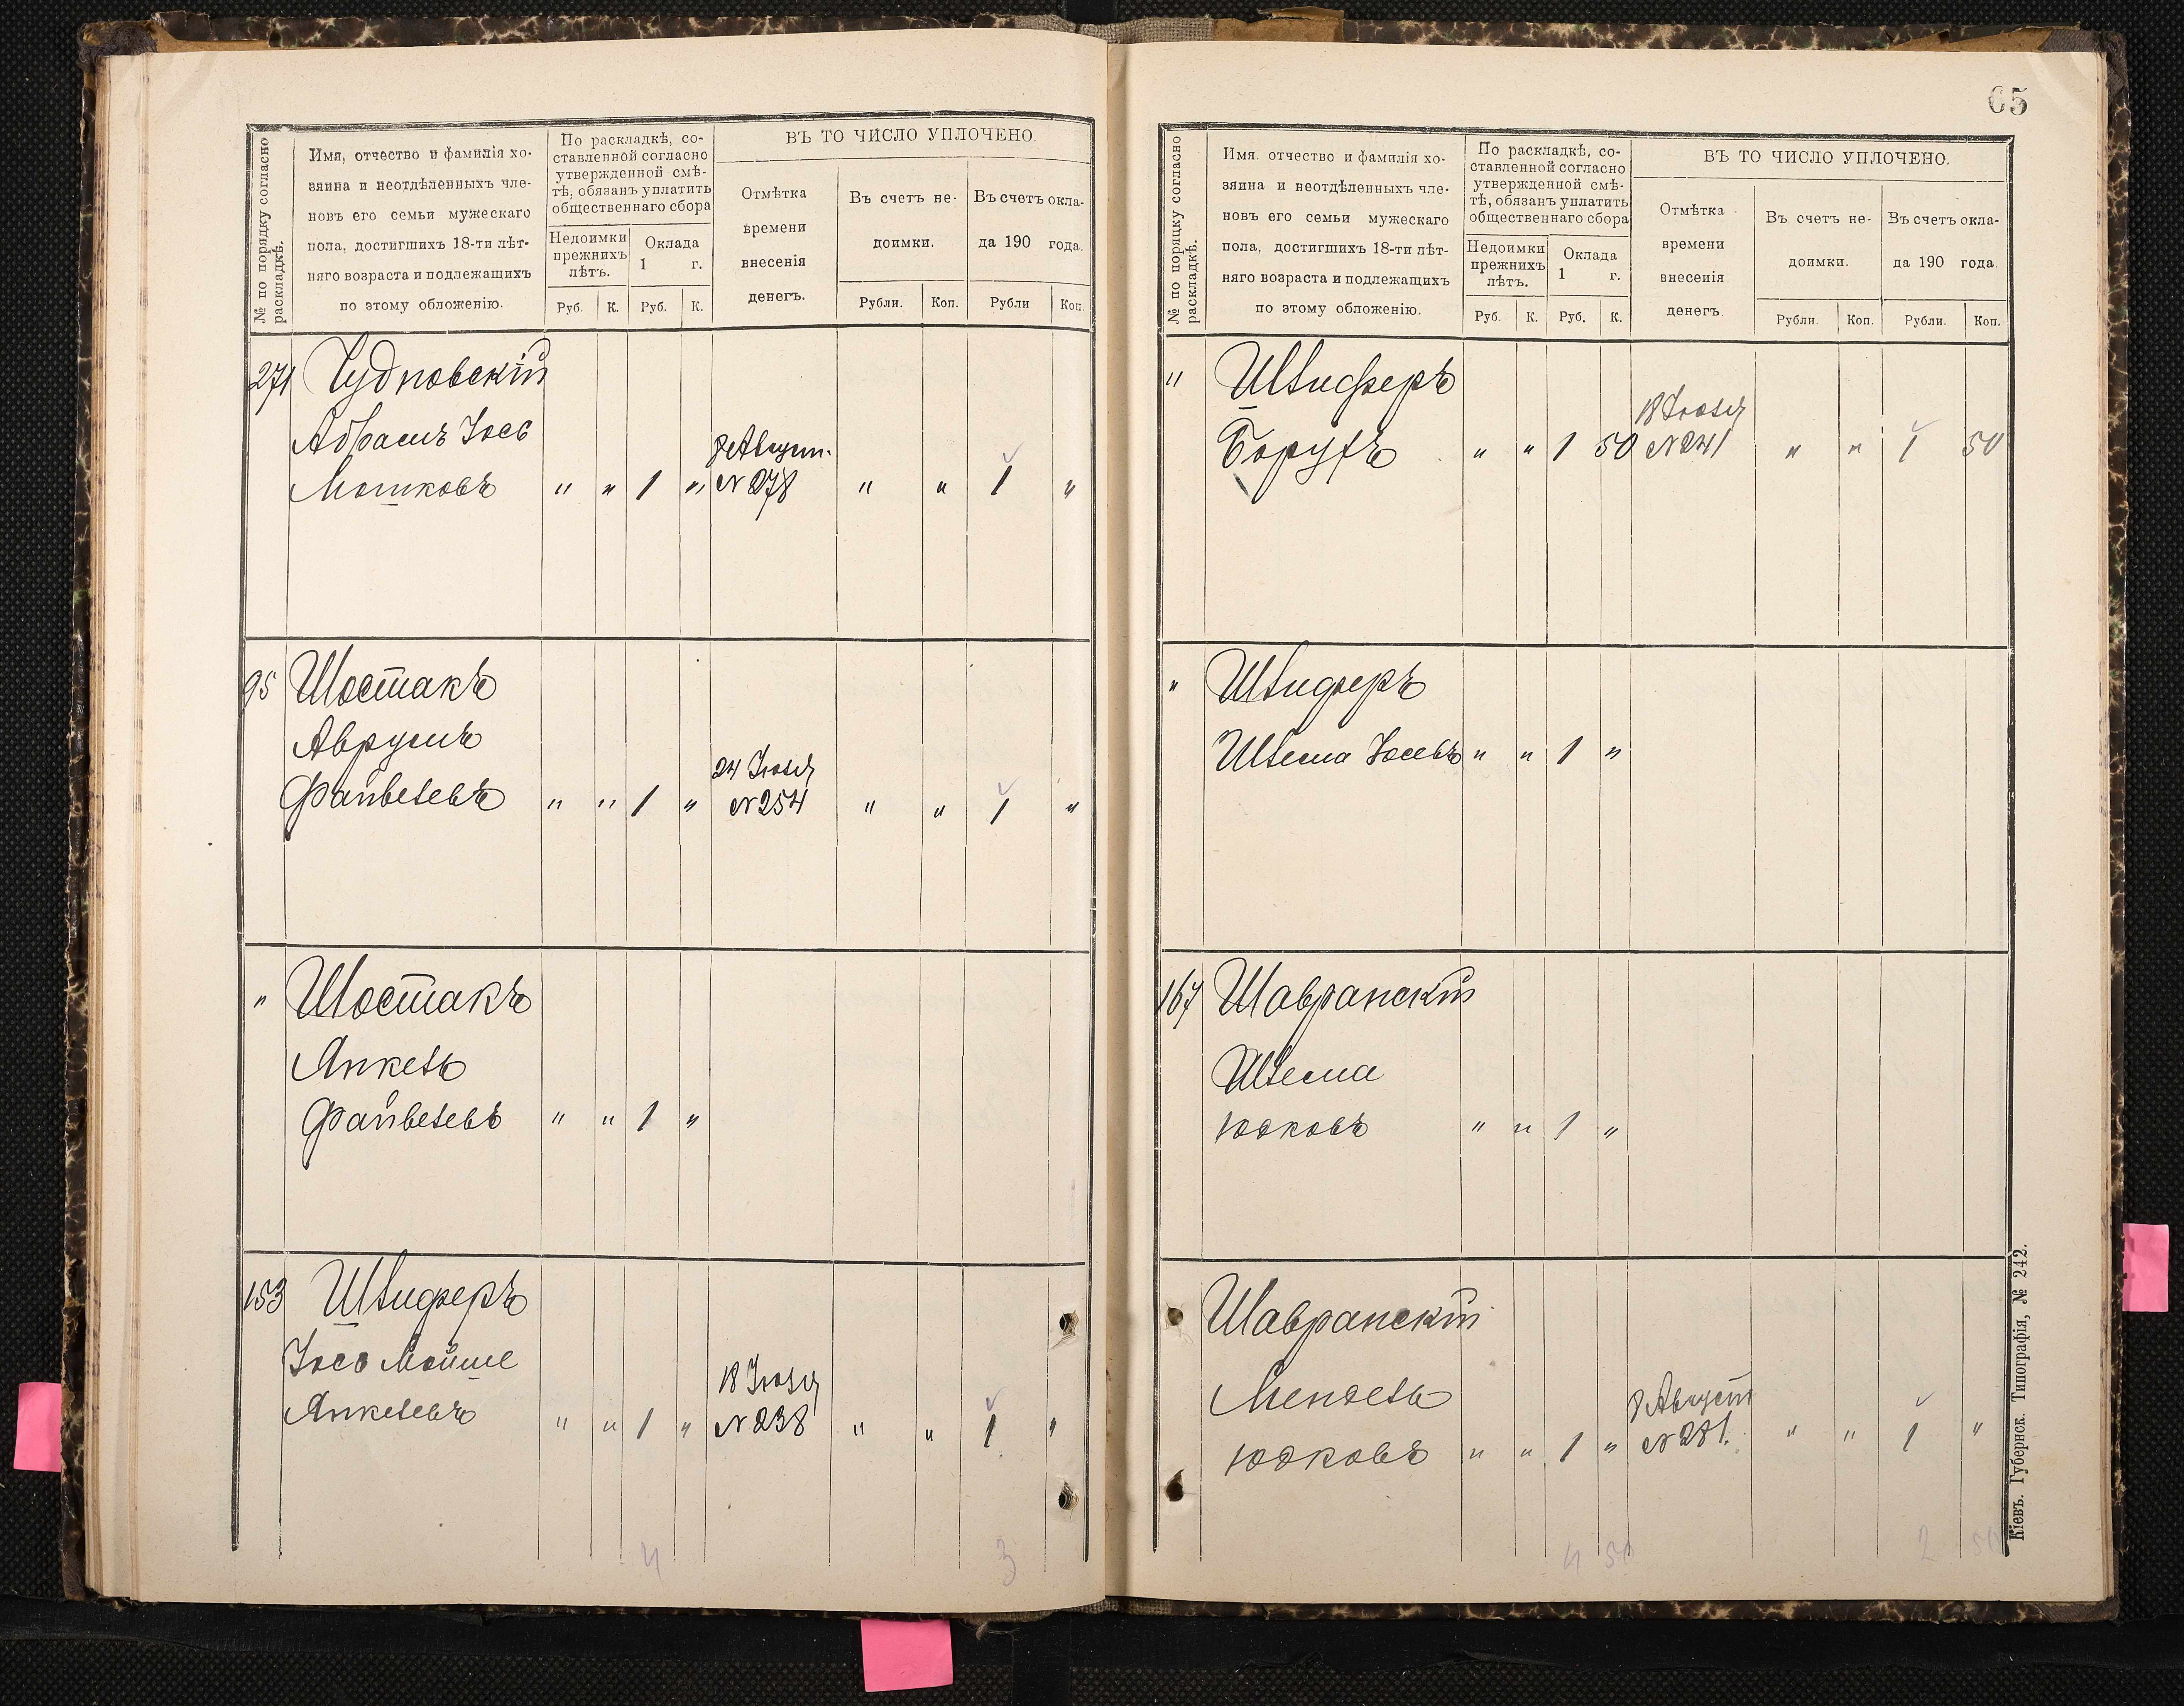 № по порядку согласно
раскладкѣ.
Имя, отчество и фамилія хо-
зяина и неотдѣленныхъ чле-
новъ его семьи мужескаго
пола, достигшихъ 18-ти лѣт-
няго возраста и подлежащихъ
по этому обложенію.
По раскладкѣ, со-
ставленной согласно
утвержденной смѣ-
тѣ, обязанъ уплатить
общественнаго сбора
Недоимки
прежнихъ
лѣтъ.
Оклада
1 г.
Руб. К. Руб. К.
ВЪ ТО ЧИСЛО УПЛОЧЕНО.
Отмѣтка
времени
внесенія
денегъ.
Въ счетъ не-
доимки.
Въ счетъ окла-
да 190 года.
Рубли. Коп. Рубли Коп.
271 Чудновскій
Абрамъ Іось
Мошковъ " " 1 " 8 Август. № 278 " " 1 "
95 Шостакъ
Аврумъ
Файвелевъ " " 1 " 24 Іюля № 254 " " 1 "
" Шостакъ
Янкель
Файвелевъ " " 1 "
153 Штиферъ
Іось Мойше
Янкелевъ " " 1 " 18 Іюля № 238 " " 1 "
4 3
65
№ по порядку согласно
раскладкѣ.
Имя. отчество и фамилія хо-
зяина и неотдѣленныхъ чле-
новъ его семьи мужескаго
пола, достигшихъ 18-ти лѣт-
няго возраста и подлежащихъ
по этому обложенію.
По раскладкѣ, со-
ставленной согласно
утвержденной смѣ-
тѣ, обязанъ уплатить
общественнаго сбора
Недоимки
прежнихъ
лѣтъ.
Оклада
1 г.
Руб. К. Руб. К.
ВЪ ТО ЧИСЛО УПЛОЧЕНО.
Отмѣтка
времени
внесенія
денегъ.
Въ счетъ не-
доимки.
Въ счетъ окла-
да 190 года.
Рубли. Коп. Рубли. Коп.
" Штиферъ
Борухъ " " 1 50 18 Іюля № 241 " " 1 50
" Штиферъ
Шлема Іосевъ " " 1 "
167 Шавранскій
Шлема
Юдковъ " " 1 "
Шавранскій
Мендель
Юдковъ " " 1 " 8 Август № 281. " " 1 "
4 50 2 50
Кіевъ. Губернск. Типографія, № 242.